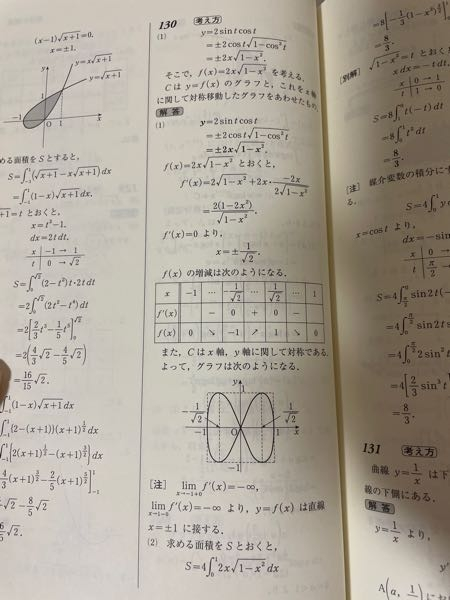 (x-1)√x+1=0.
x=±1.
y
y=x√x+1
y=√x+1
-1
1
x
める面積をSとすると,
S=∫₋₁¹(√x+1-x√x+1)dx
=∫₋₁¹(1-x)√x+1dx.
x+1=t とおくと,
x=t²-1.
dx=2tdt.
x | -1 → 1
t | 0 → √2
S=∫₀^√2(2-t²)t・2tdt
=2∫₀^√2(2t²-t⁴)dt
=2[2/3t³-1/5t⁵]₀^√2
=2(4/3√2-4/5√2)
=16/15√2.
(1-x)√x+1dx
{2-(x+1)}(x+1)^1/2dx
{2(x+1)^1/2-(x+1)^3/2}dx
4/3(x+1)^3/2-2/5(x+1)^5/2]₋₁¹
√2-8/5√2
√2.
130 考え方
(1) y=2sintcost
=±2cost√1-cos²t
=±2x√1-x².
そこで, f(x)=2x√1-x² を考える.
Cは y=f(x) のグラフと, これをx軸
に関して対称移動したグラフをあわせたもの.
解答
(1) y=2sintcost
=±2cost√1-cos²t
=±2x√1-x².
f(x)=2x√1-x² とおくと,
f′(x)=2√1-x²+2x・-2x/2√1-x²
=2(1-2x²)/√1-x².
f′(x)=0 より,
x=±1/√2.
f(x) の増減は次のようになる.
x | -1 | … | -1/√2 | … | 1/√2 | … | 1
f′(x) | | - | 0 | + | 0 | - |
f(x) | 0 | ↘ | -1 | ↗ | 1 | ↘ | 0
また, Cはx軸, y軸に関して対称である.
よって, グラフは次のようになる.
y
1
-1/√2
1/√2
-1
O
1
x
-1
[注] lim x→-1+0 f′(x)=-∞,
lim x→1-0 f′(x)=-∞ より, y=f(x) は直線
x=±1 に接する.
(2) 求める面積をSとおくと,
S=4∫₀¹2x√1-x²dx
=8[-1/3(1-x²)
=8/3.
[別解]
√1-x²=t とおくと
xdx=-tdt
x | 0 → 1
t | 1 → 0
S=8∫₁⁰t(-t)dt
=8∫₀¹t²dt
=8/3.
[注]
媒介変数の積分に
S=4∫₀¹y
x=cost より,
dx=-sin
x | 0
t | π/2
S=4∫
sin2t(-
=4∫
sin2t
=4∫
2sin²
=4[2/3sin³t
=8/3.
131 考え方
曲線 y=1/x は下
線の下側にある.
解答
y=1/x より,
A(α, 1